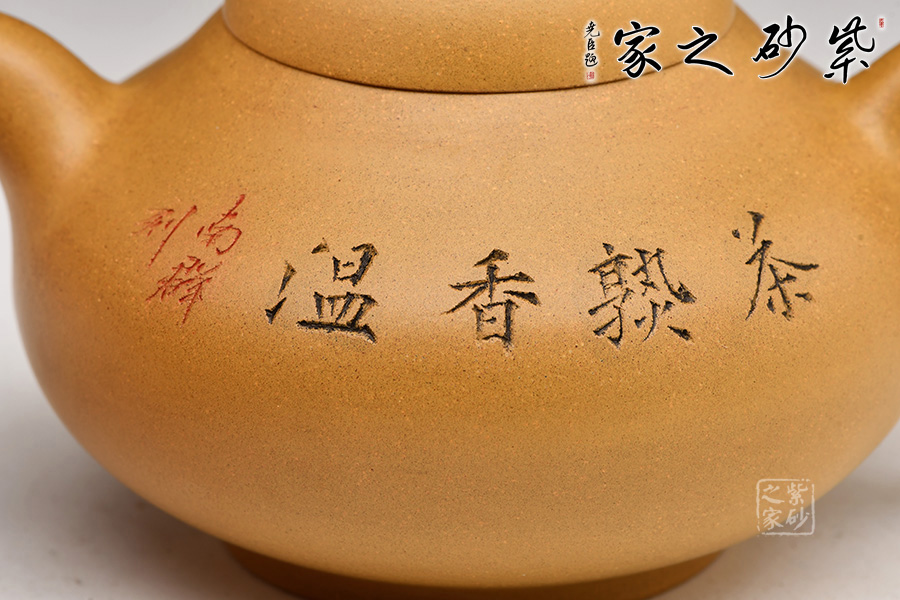 紫砂之家
尧臣题
茶熟香温
南群刻
紫砂之家